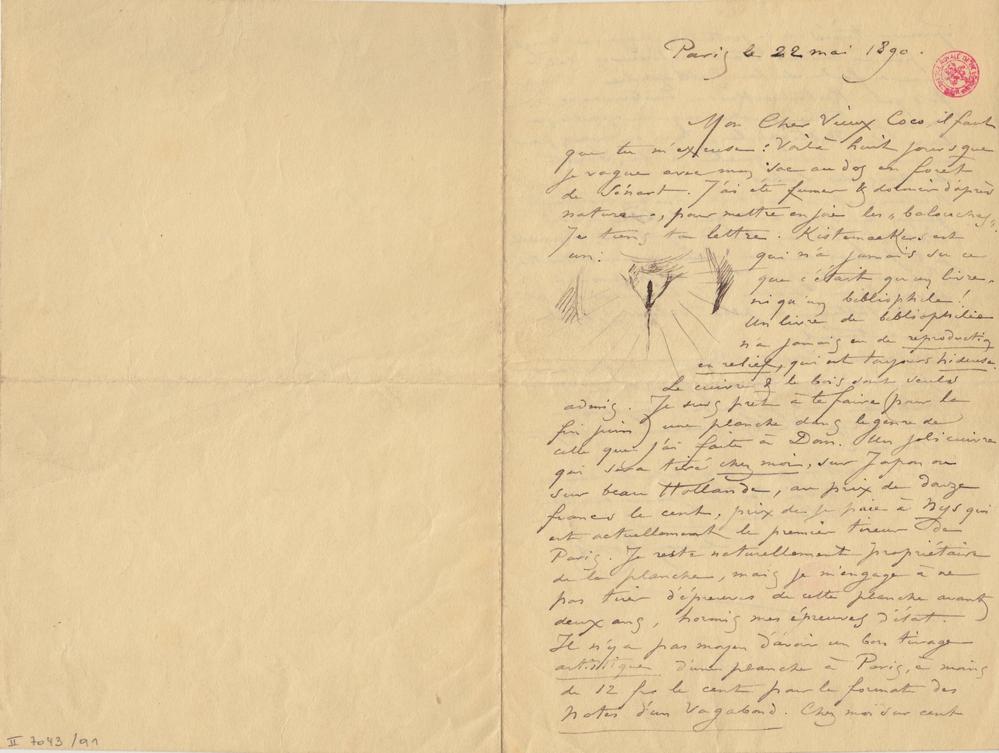 Paris le 22 mai 1890.
Mon Cher Vieux Coco, il faut
que tu m'excuse : Voilà huit jours que
je vague avec mon sac au dos en foret
de Sénart. J'ai été fumer & dormir d'après
nature, pour mettre en joie les « balouches ».
Je tiens ta lettre. Kistemaekers est
un: qui n'a jamais su ce
que c'était qu'un livre,
ni qu'un bibliophile!
Un livre de bibliophilie
n'a jamais eu de reproduction
en relief, qui est toujours hideuse.
Le cuivre & le bois sont seuls
admis. Je suis prêt à te faire (pour la
fin juin) une planche dans le genre de
celle que j'ai faite à Dom. Un joli cuivre
qui sera tiré chez moi, sur Japon ou
sur beau Hollande, au prix de douze
francs le cent, prix de je paie à Nys qui
est actuellement le premier tireur de
Paris. Je reste naturellement propriétaire
de la planche, mais je m'engage à ne
pas tirer d'épreuves de cette planche avant
deux ans, hormis mes épreuves d'état.
Il n'y a pas moyen d'avoir un bon tirage
artistique d'une planche à Paris, à moins
de 12 frs le cent pour le format des
Notes d'un Vagabond. Chez moi sur cent
II 7043/91